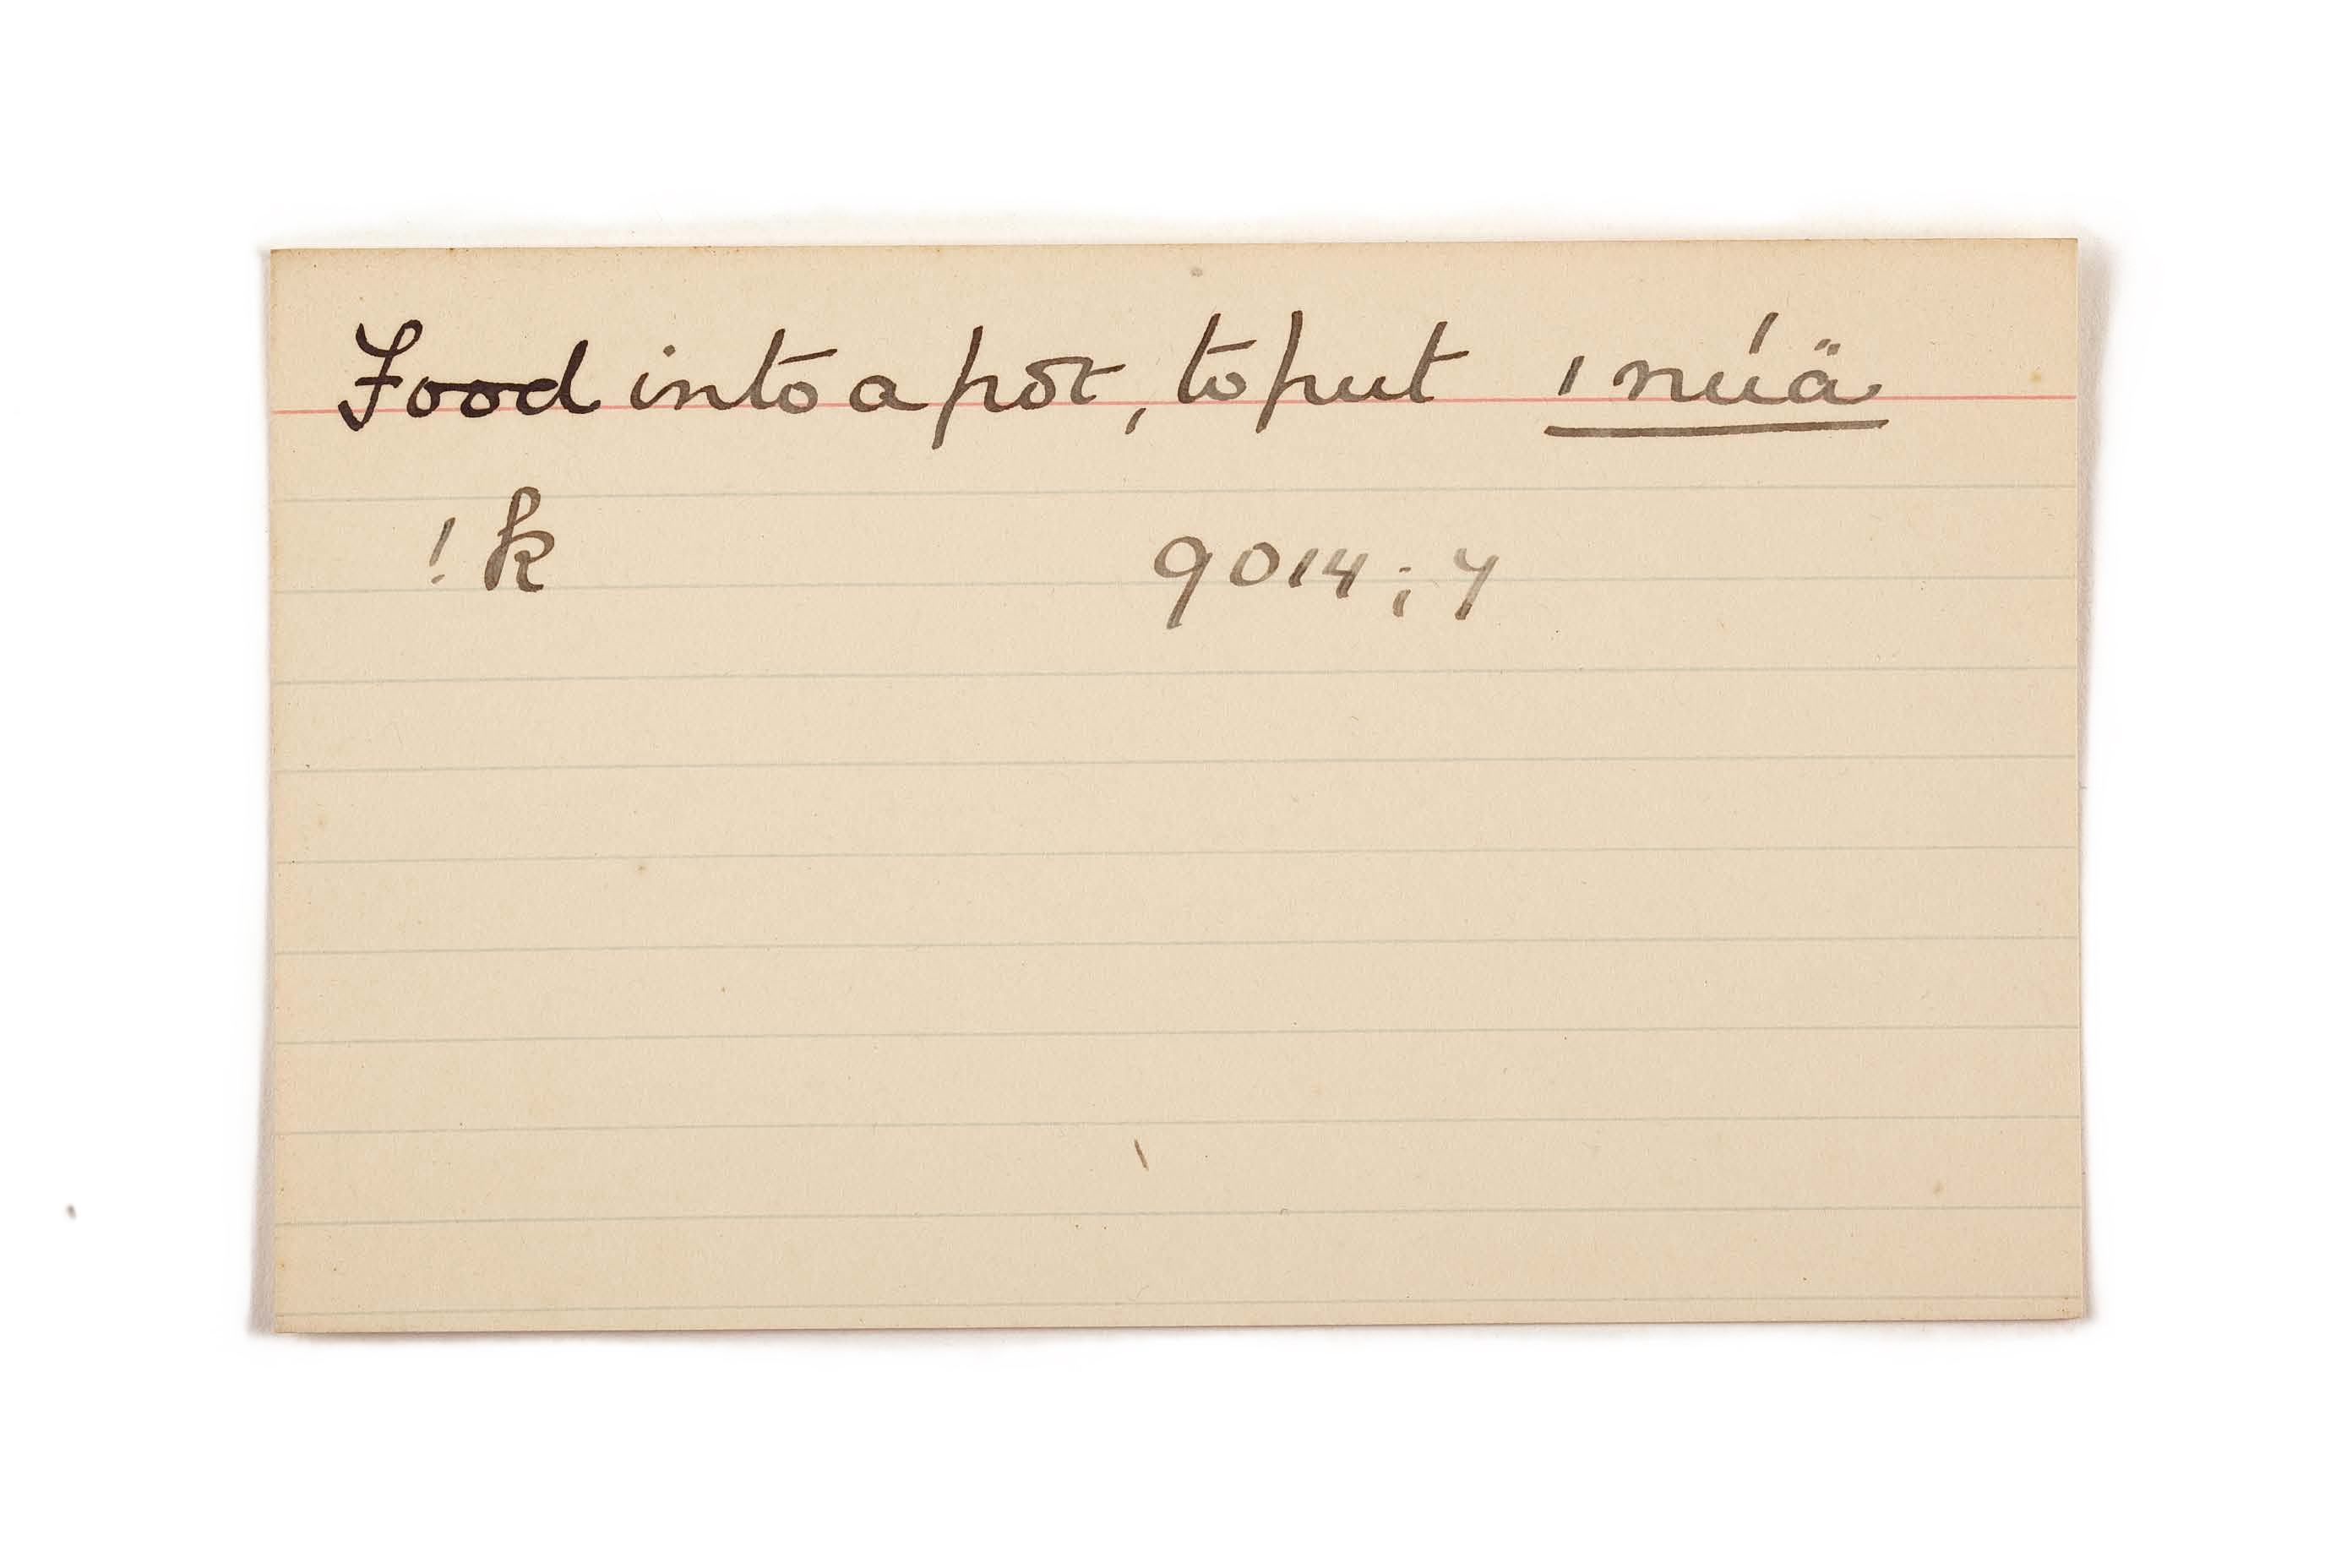 Food into a pot, to put ǀnúä
!k 9014; 7